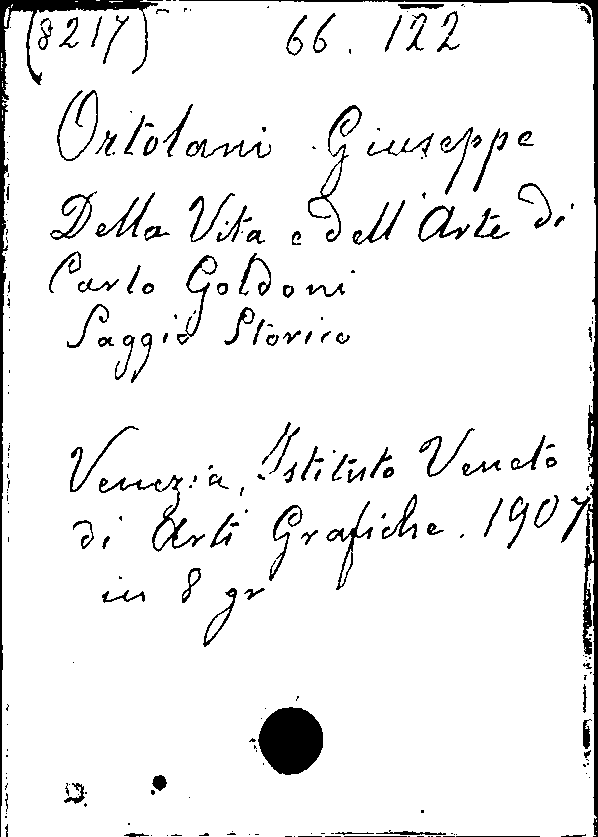 (8217) 66.122
Ortolani Giuseppe
Della Vita e dell'Arte di
Carlo Goldoni
Saggio Storico
Venezia, Istituto Veneto
di Arti Grafiche. 1907
in 8 gr